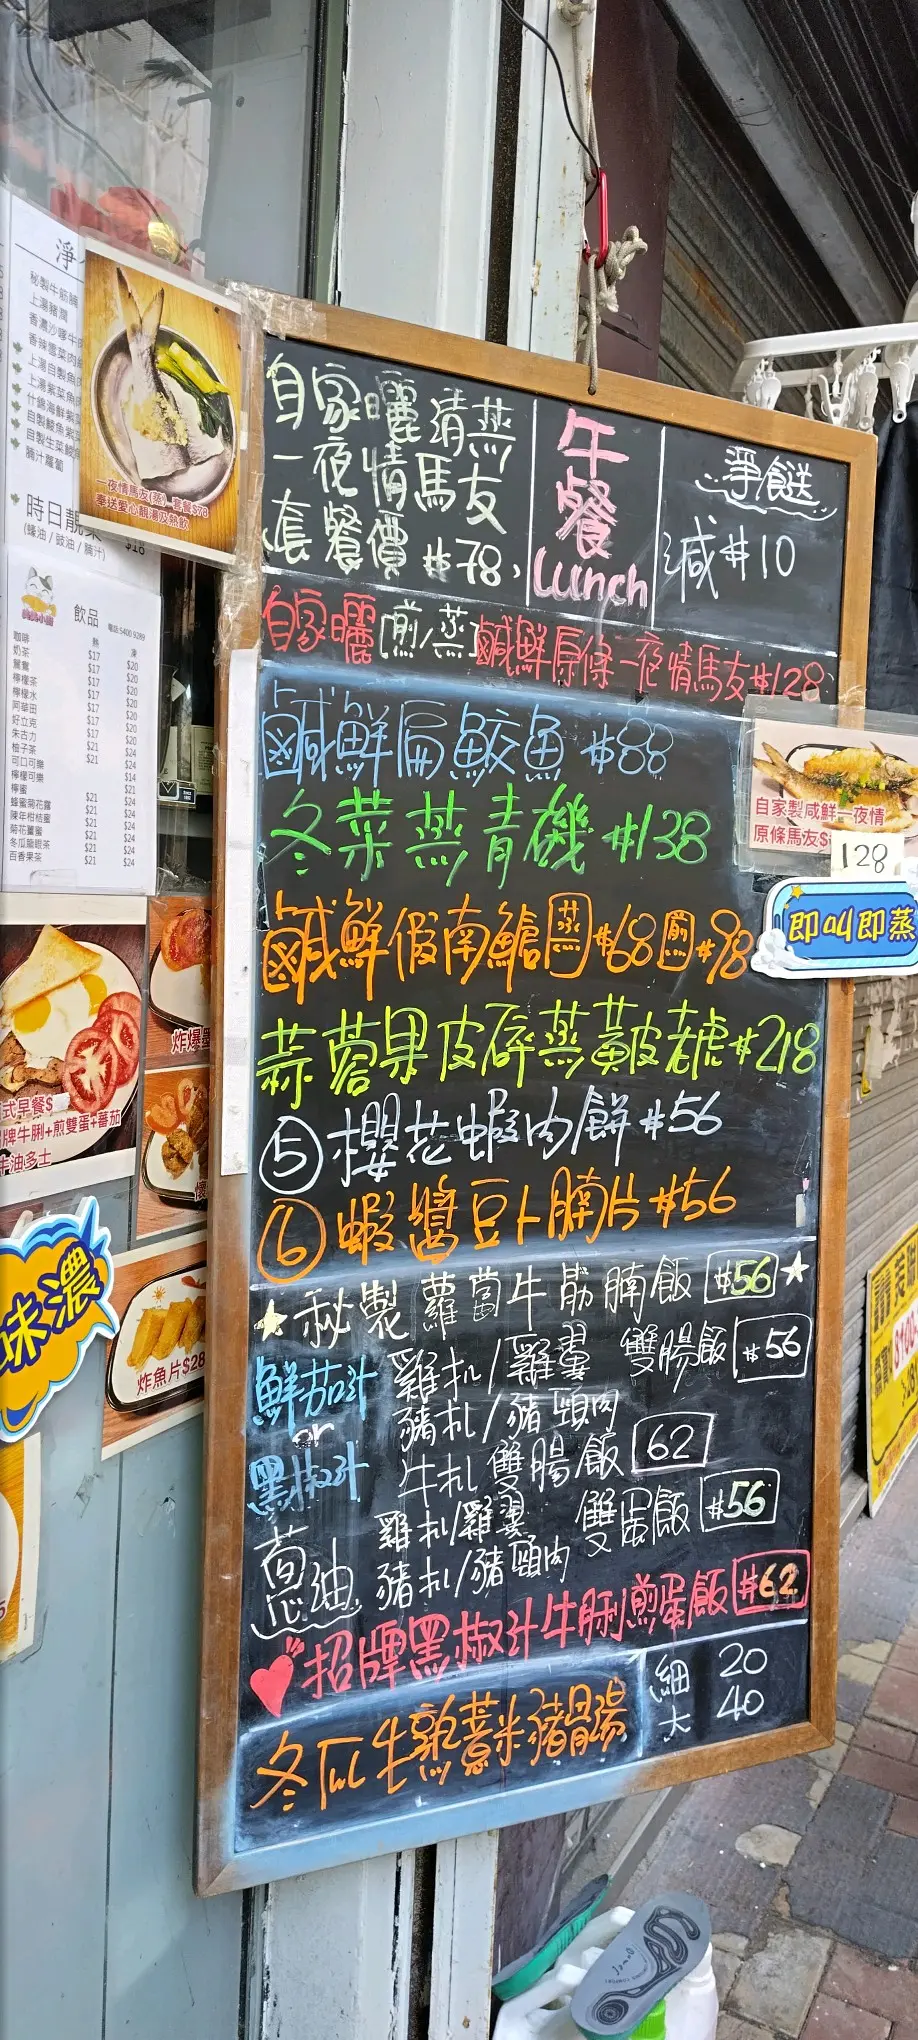 秘製牛筋腩
上湯豬潤
香濃沙嗲牛肉
香辣雪菜肉絲
上湯自製魚肉
上湯紫菜魚
什錦海鮮紫菜
自製鯪魚紫菜
自製生菜鯪魚
腩汁蘿蔔
時日靚菜 $18
(蠔油 / 豉油 / 腩汁)
飲品
電話:5400 9289
熱 凍
咖啡 $17 $20
奶茶 $17 $20
鴛鴦 $17 $20
檸檬茶 $17 $20
檸檬水 $17 $20
阿華田 $17 $20
好立克 $17 $20
朱古力
柚子茶
可口可樂
檸檬可樂
檸蜜
蜂蜜菊花露
陳年柑桔蜜
菊花薑蜜
冬瓜龍眼茶
百香果茶
一夜情馬友(蒸)一套餐$78
奉送愛心靚湯及熱飲
自家曬清蒸
一夜情馬友
套餐價 $78
午餐
Lunch
淨食送
減$10
自家曬[煎/蒸]鹹鮮原條一夜情馬友$128
鹹鮮扁鮫魚 $88
冬菜蒸青磯 $138
鹹鮮假南鱠 蒸 $68 煎 $98
蒜蓉果皮碎蒸黃皮老虎 $218
⑤ 櫻花蝦肉餅 $56
⑥ 蝦醬豆卜腩片 $56
秘製蘿蔔牛筋腩飯 $56
鮮茄汁
or
黑椒汁
雞扒/雞翼 雙腸飯 $56
豬扒/豬頸肉
牛扒雙腸飯 62
蔥油
雞扒/雞翼 雙蛋飯 $56
豬扒/豬頸肉
招牌黑椒汁牛脷煎蛋飯 $62
冬瓜生熟薏米豬骨湯
細 20
大 40
自家製咸鮮一夜情
原條馬友$
128
即叫即蒸
式早餐$
牌牛脷+煎雙蛋+蕃茄
牛油多士
味濃
炸魚片$28